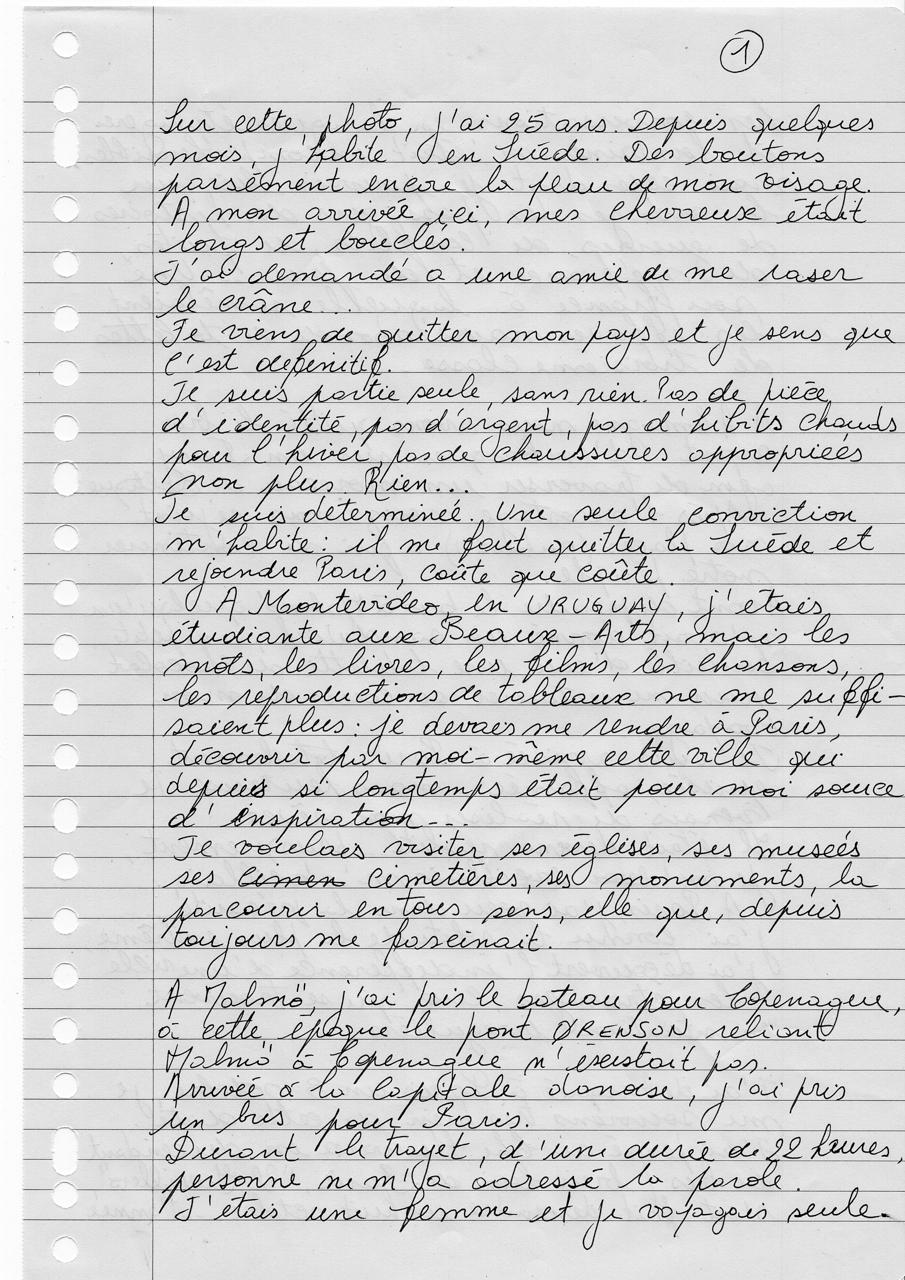 1
Sur cette photo, j'ai 25 ans. Depuis quelques
mois, j'habite en Suède. Des boutons
parsèment encore la peau de mon visage.
A mon arrivée ici, mes chevaeux était
longs et bouclés.
J'ai demandé a une amie de me raser
le crâne...
Je viens de quitter mon pays et je sens que
c'est definitif.
Je suis partie seule, sans rien. Pas de pièce
d'identité, pas d'argent, pas d'hibits chauds
pour l'hiver, pas de chaussures appropriées
non plus. Rien...
Je suis déterminée. Une seule conviction
m'habite: il me faut quitter la Suède et
rejoindre Paris, coûte que coûte.
A Montevideo, en URUGUAY, j'étais
étudiante aux Beaux-Arts, mais les
mots, les livres, les films, les chansons,
les reproductions de tableaux ne me suffi-
saient plus: je devais me rendre à Paris,
découvrir par moi-même cette ville qui
depuis si longtemps était pour moi source
d'inspiration...
Je voulais visiter ses églises, ses musées
ses cimen cimetières, ses monuments, la
parcourir en tous sens, elle que, depuis
toujours me fascinait.
A Malmö, j'ai pris le bateau pour Copenague,
à cette époque le pont ØRENSON reliant
Malmö à Copenague n'éxistait pas.
Arrivée à la Capitale danoise, j'ai pris
un bus pour Paris.
Durant le trayet, d'une durée de 22 heures,
personne ne m'a adressé la parole.
J'étais une femme et je voyagais seule.